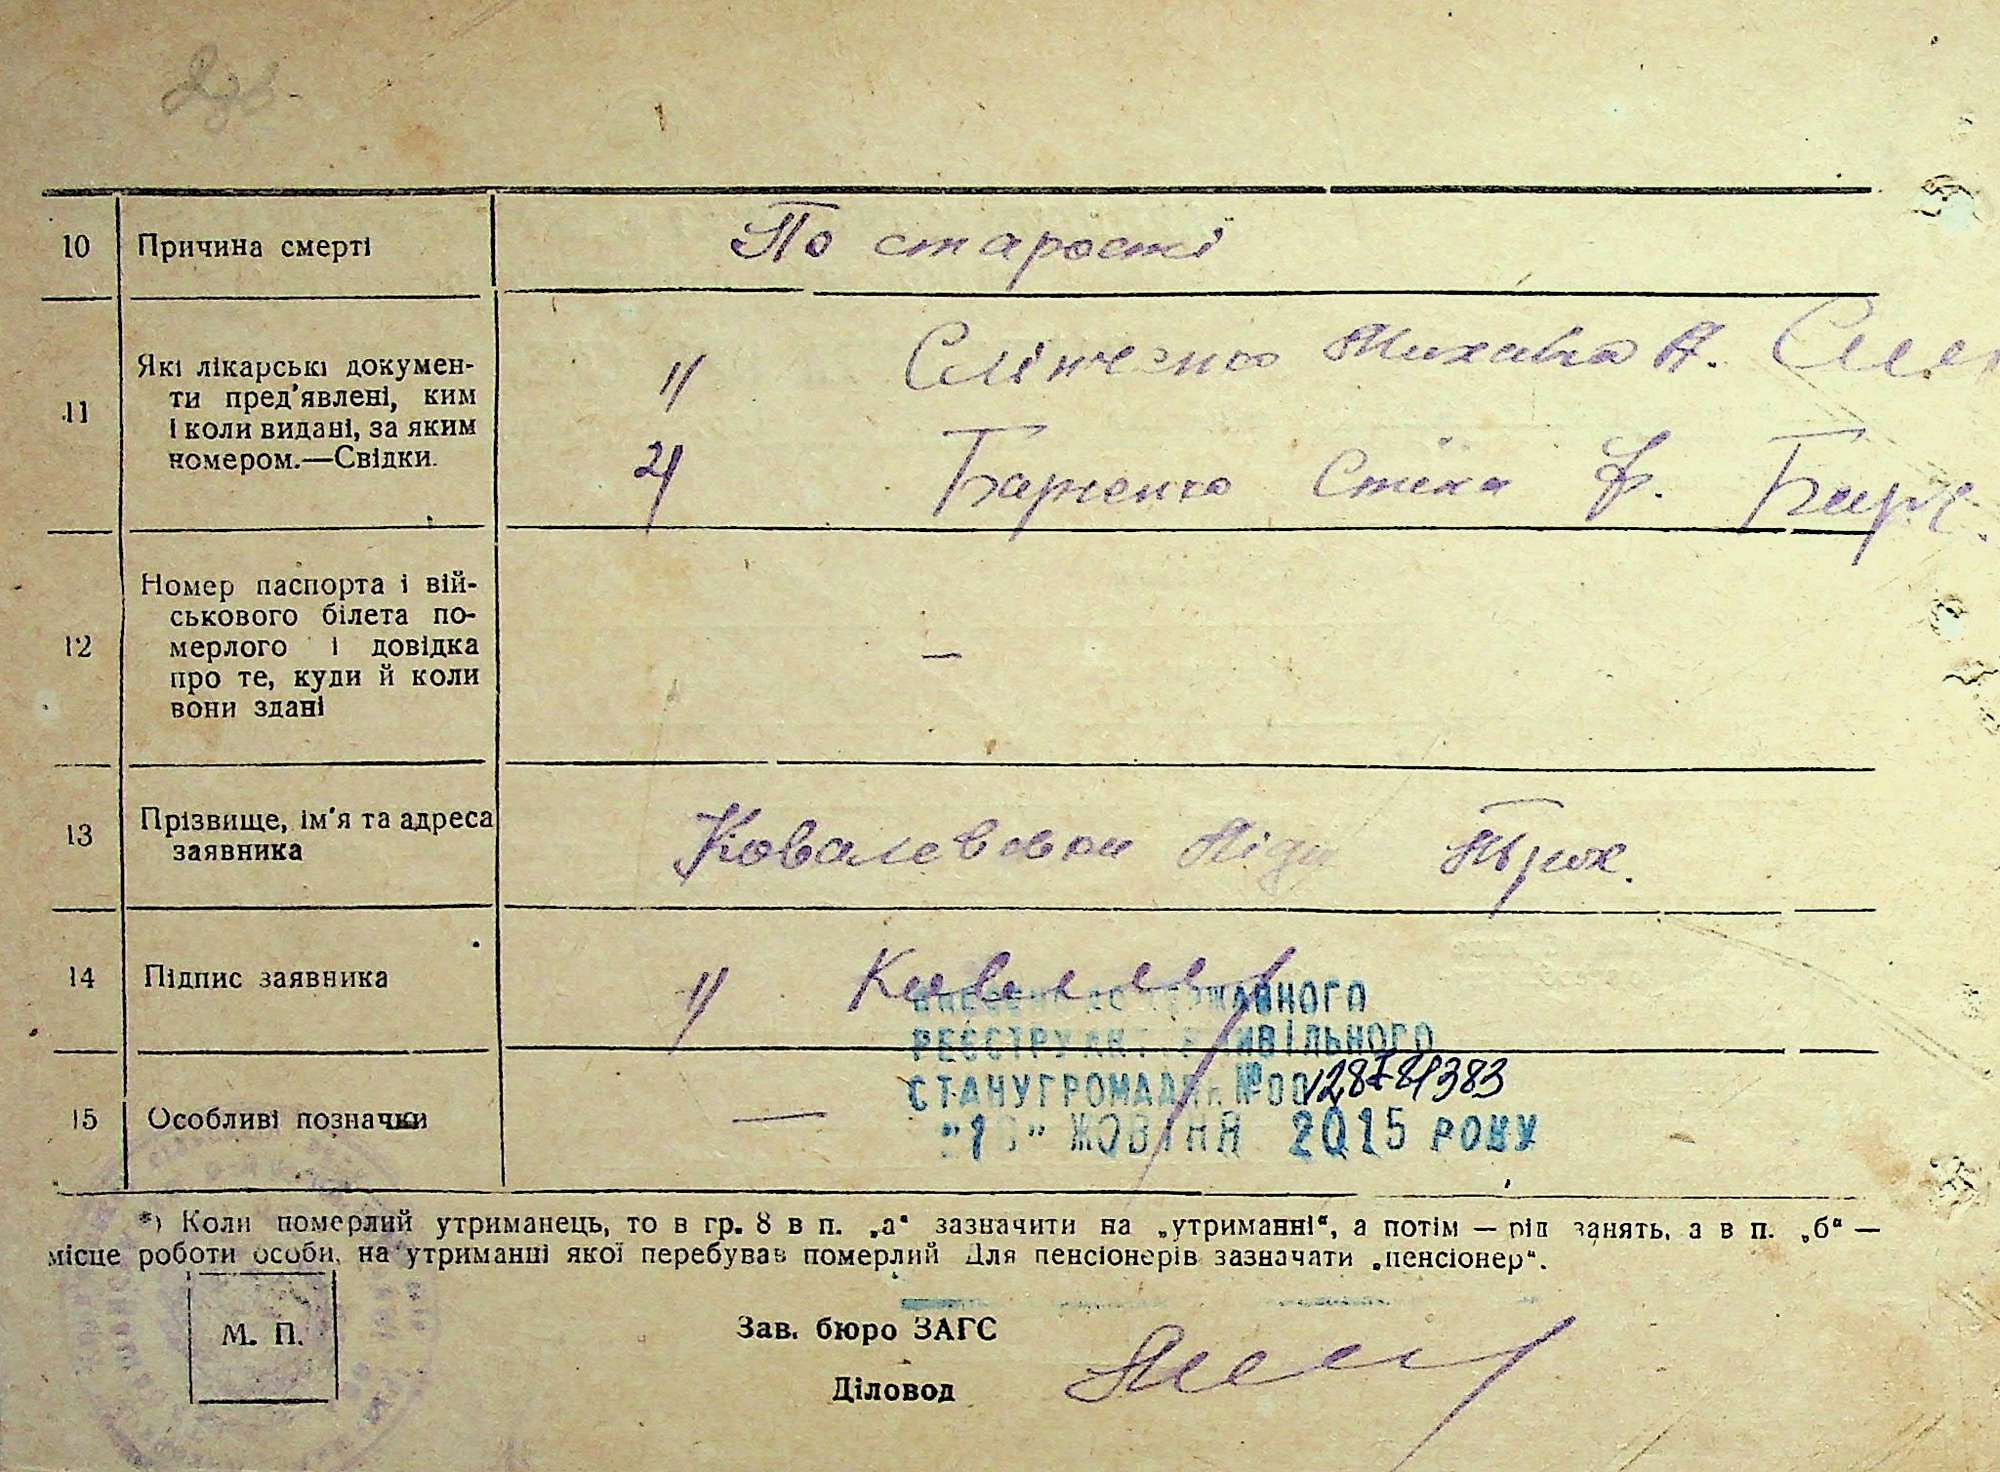 10 Причина смерті По старості
11 Які лікарські докумен-
ти пред'явлені, ким
і коли видані, за яким
номером.—Свідки.
1/ Слінченко Михайло А.
2/ Барченко Стеха Ф. Барч.
12 Номер паспорта і вій-
ськового білета по-
мерлого і довідка
про те, куди й коли
вони здані
—
13 Прізвище, ім'я та адреса
заявника
Ковалевська
14 Підпис заявника 1/
ВНЕСЕНО ДО ДЕРЖАВНОГО
РЕЄСТРУ АКТІВ ЦИВІЛЬНОГО
СТАНУ ГРОМАДЯН №00128781383
15 Особливі позначки —
ЖОВТНЯ 2015 РОКУ
*) Коли померлий утриманець, то в гр. 8 в п. „а“ зазначити на „утриманні“, а потім — рід занять, а в п. „б“ —
місце роботи особи, на утриманні якої перебував померлий Для пенсіонерів зазначати „пенсіонер“.
М. П.
Зав. бюро ЗАГС
Діловод